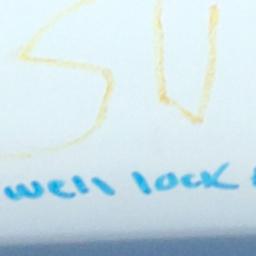 SU
well lock